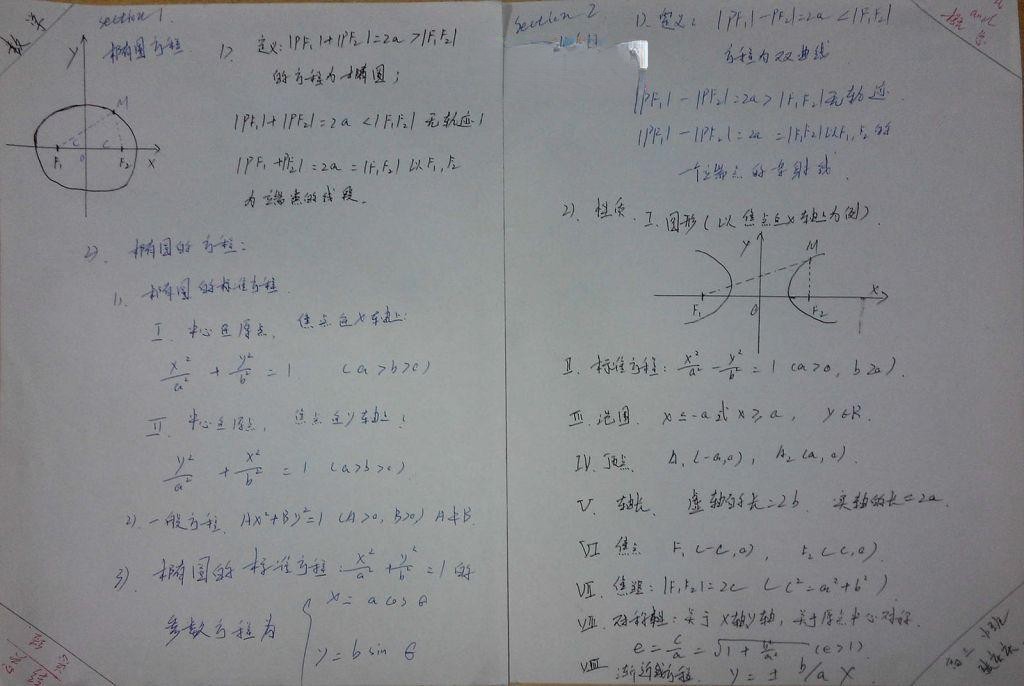 数学
section 1.
椭圆方程
1) 定义: |PF₁|+|PF₂|=2a>|F₁F₂|
的方程为椭圆;
|PF₁|+|PF₂|=2a<|F₁F₂| 无轨迹;
|PF₁+PF₂|=2a=|F₁F₂| 以F₁,F₂
为端点的线段.
y
M
c
c
F₁
O
F₂
x
2). 椭圆的方程:
1). 椭圆的标准方程.
I. 中心在原点, 焦点在x轴上:
x²/a² + y²/b² = 1 (a>b>0)
II. 中心在原点, 焦点在y轴上:
y²/a² + x²/b² = 1 (a>b>0).
2) 一般方程. Ax²+By²=1 (A>0, B>0) A≠B.
3) 椭圆的标准方程: x²/a² + y²/b² = 1 的
参数方程为
x = a cos θ
y = b sin θ
section 2
1). 定义: |PF₁|-|PF₂|=2a<|F₁F₂|
方程为双曲线
|PF₁|-|PF₂|=2a>|F₁F₂| 无轨迹.
|PF₁|-|PF₂|=2a=|F₁F₂| 以F₁,F₂的
一个端点的射线.
2). 性质. I. 图形 (以焦点在x轴上为例).
y
M
F₁
O
F₂
x
II. 标准方程: x²/a² - y²/b² = 1 (a>0, b>0).
III. 范围. x≤-a或x≥a, y∈R.
IV. 顶点. A₁(-a,0), A₂(a,0).
V. 轴长. 虚轴的长=2b. 实轴的长=2a.
VI 焦点 F₁(-c,0), F₂(c,0)
VII. 焦距: |F₁F₂|=2c (c²=a²+b²)
VIII. 对称轴: 关于x轴y轴, 关于原点中心对称.
e = c/a = √(1+b²/a²) (e>1)
VIII 渐近线方程 y = ± b/a x